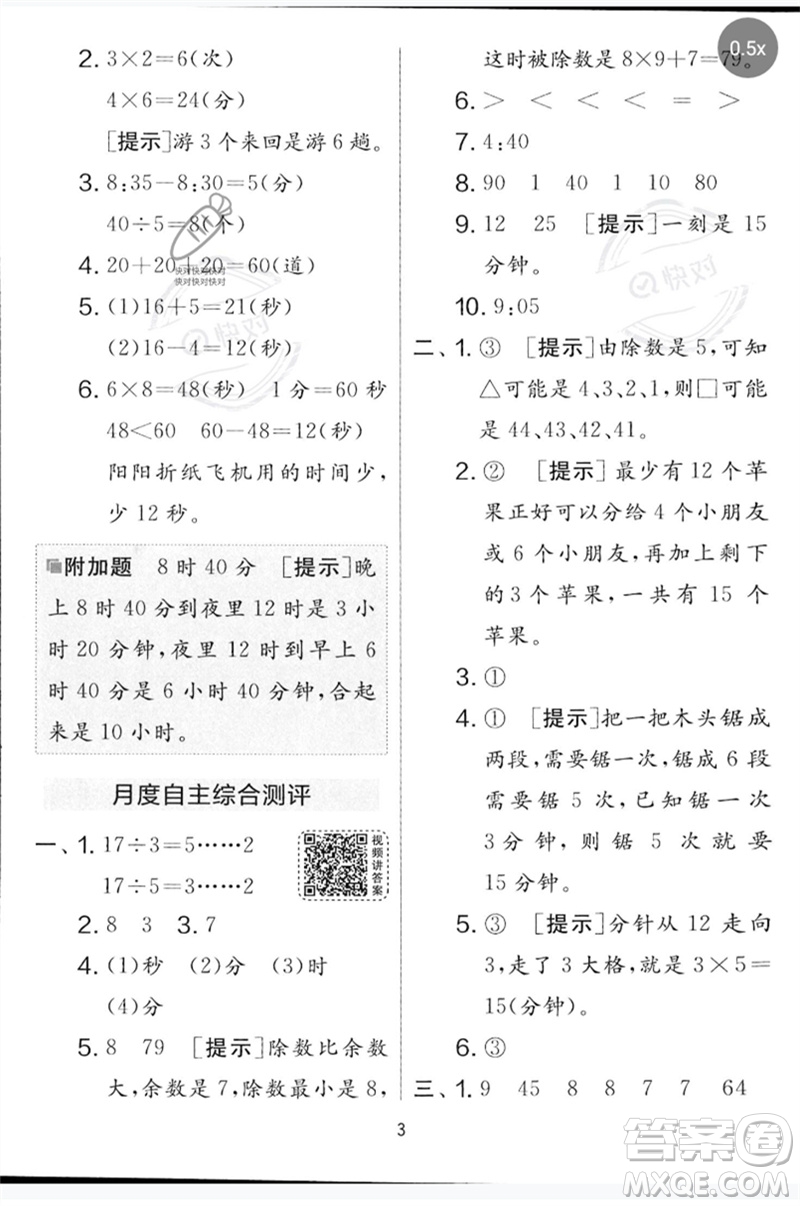 2. 3×2=6(次)
4×6=24(分)
[提示]游 3 个来回是游 6 趟。
3. 8:35－8:30=5(分)
40÷5=8(个)
4. 20+20+20=60(道)
快对快对快对
快对快对快对
5. (1)16+5=21(秒)
(2)16－4=12(秒)
6. 6×8=48(秒) 1 分=60 秒
48＜60 60－48=12(秒)
阳阳折纸飞机用的时间少,
少 12 秒。
附加题 8 时 40 分 [提示]晚
上 8 时 40 分到夜里 12 时是 3 小
时 20 分钟,夜里 12 时到早上 6
时 40 分是 6 小时 40 分钟,合起
来是 10 小时。
月度自主综合测评
一、1. 17÷3=5……2
17÷5=3……2
视频讲答案
2. 8 3 3. 7
4. (1)秒 (2)分 (3)时
(4)分
5. 8 79 [提示]除数比余数
大,余数是 7,除数最小是 8,
0.5x
这时被除数是 8×9+7=79。
6. ＞ ＜ ＜ ＜ = ＞
7. 4:40
8. 90 1 40 1 10 80
9. 12 25 [提示]一刻是 15
分钟。
快对
快对
10. 9:05
二、1. ③ [提示]由除数是 5,可知
△可能是 4、3、2、1,则□可能
是 44、43、42、41。
2. ② [提示] 最少有 12 个苹
果正好可以分给 4 个小朋友
或 6 个小朋友,再加上剩下
的 3 个苹果,一共有 15 个
苹果。
3. ①
4. ① [提示]把一把木头锯成
两段,需要锯一次,锯成 6 段
需要锯 5 次,已知锯一次
3 分钟,则锯 5 次就要
15 分钟。
5. ③ [提示]分针从 12 走向
3,走了 3 大格,就是 3×5=
15(分钟)。
6. ③
三、1. 9 45 8 8 7 7 64
3
答案卷
MXQE.COM